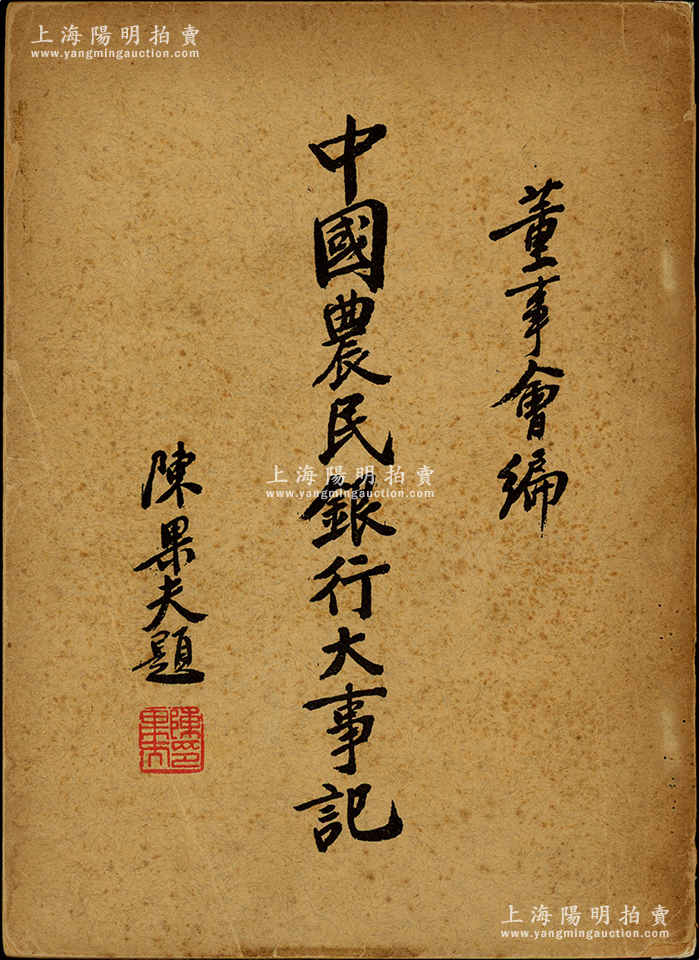 上海陽明拍賣
www.yangmingauction.com
董事會編
中國農民銀行大事記
陳果夫題
上海陽明拍賣
www.yangmingauction.com
上海陽明拍賣
www.yangmingauction.com